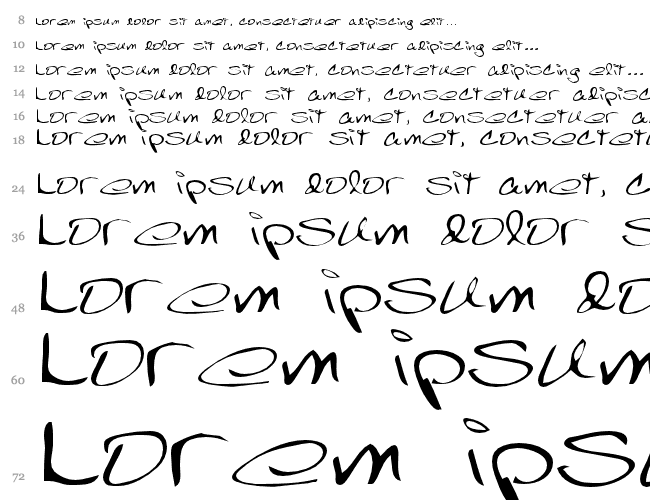 8 Lorem ipsum dolor sit amet, consectetuer adipiscing elit...
10 Lorem ipsum dolor sit amet, consectetuer adipiscing elit...
12 Lorem ipsum dolor sit amet, consectetuer adipiscing elit...
14 Lorem ipsum dolor sit amet, consectetuer adipisc
16 Lorem ipsum dolor sit amet, consectetuer a
18 Lorem ipsum dolor sit amet, consectetu
24 Lorem ipsum dolor sit amet, c
36 Lorem ipsum dolor s
48 Lorem ipsum do
60 Lorem ipsum
72 Lorem ips